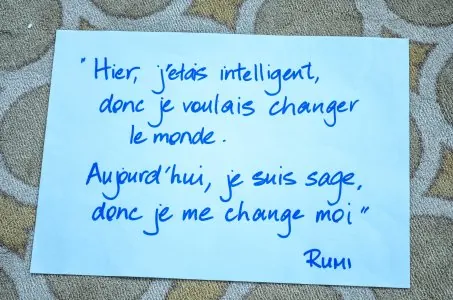 "Hier, j'etais intelligent,
donc je voulais changer
le monde.
Aujourd'hui, je suis sage,
donc je me change moi"
RUMI